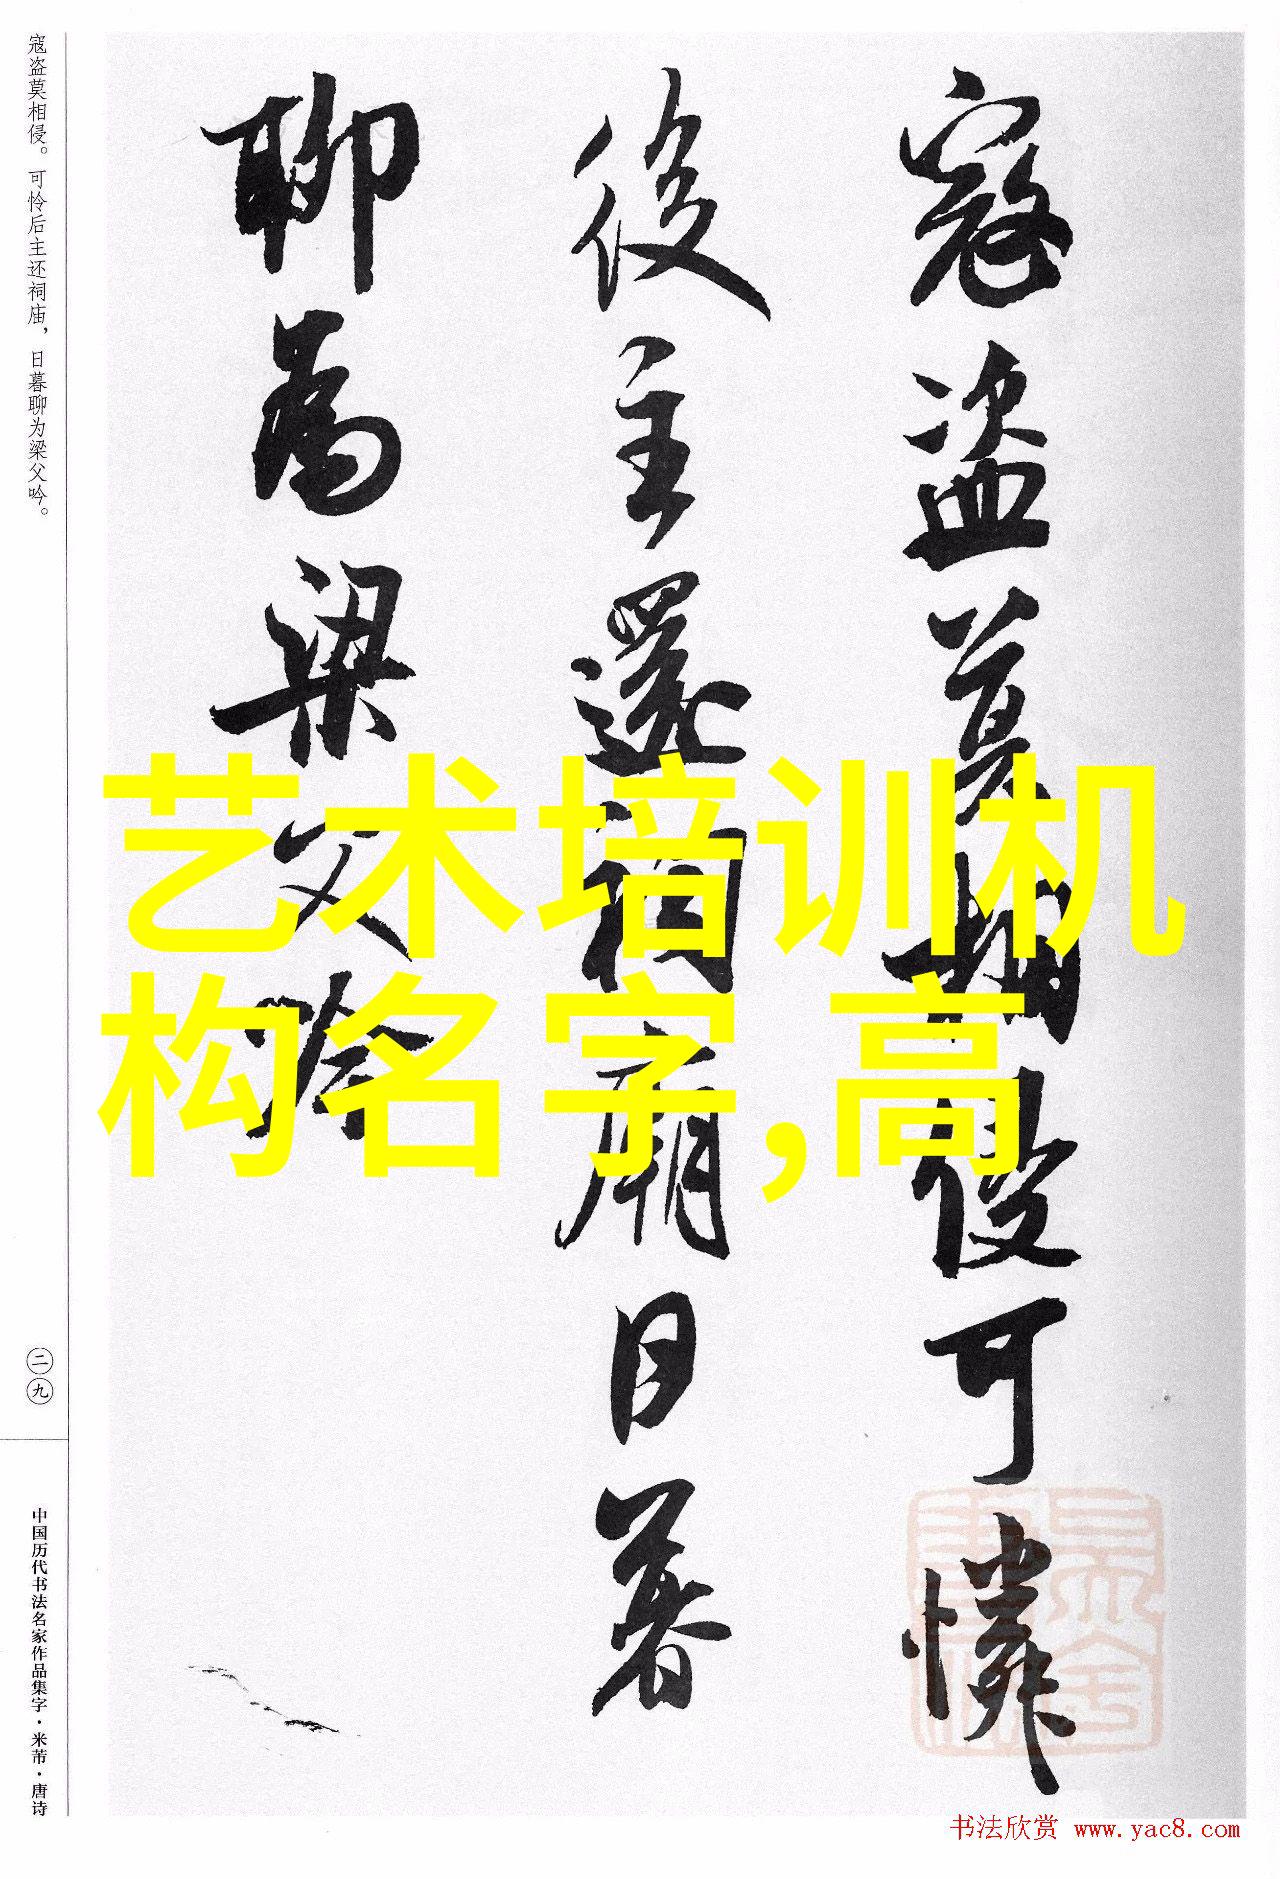 寇盗莫相侵可憐
後主還祠廟日暮
聊為梁父吟
寇盗莫相侵。可怜后主还祠庙，日暮聊为梁父吟。
二九
中国历代书法名家作品集字·米芾·唐诗
艺术培训机
构名字,高
书法欣赏 www.yac8.com